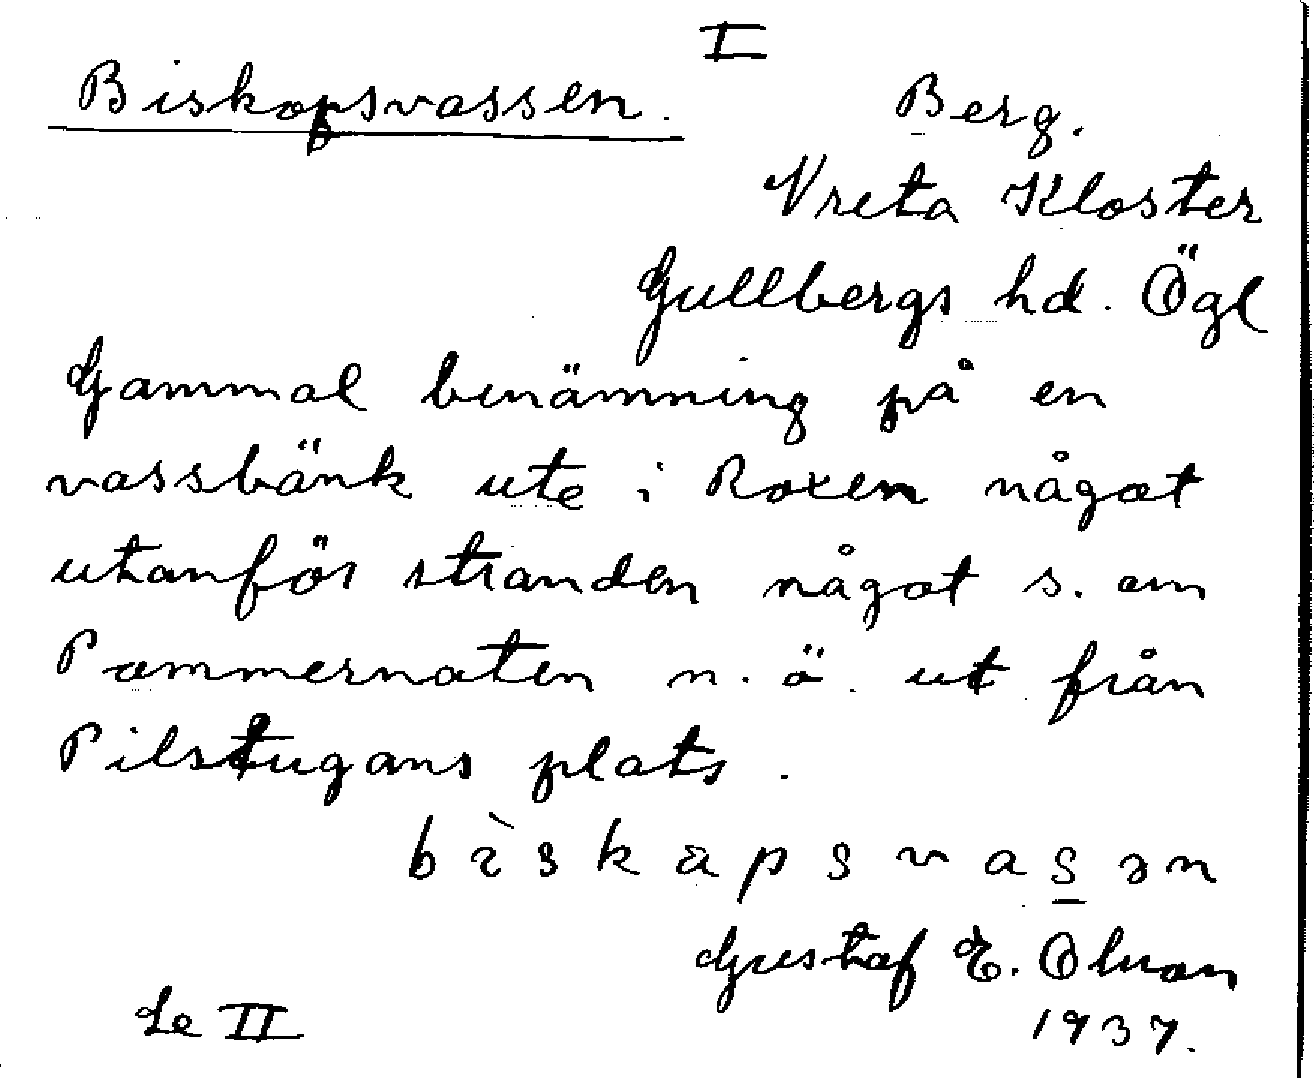 I
Biskopsvassen.
Berg.
Vreta Kloster
Gullbergs hd. Ögl
Gammal benämning på en
vassbänk ute i Roxen något
utanför stranden något s. om
Pommernaten n. ö. ut från
Pilstugans plats.
Gustaf E. Olson
1937.
Se II